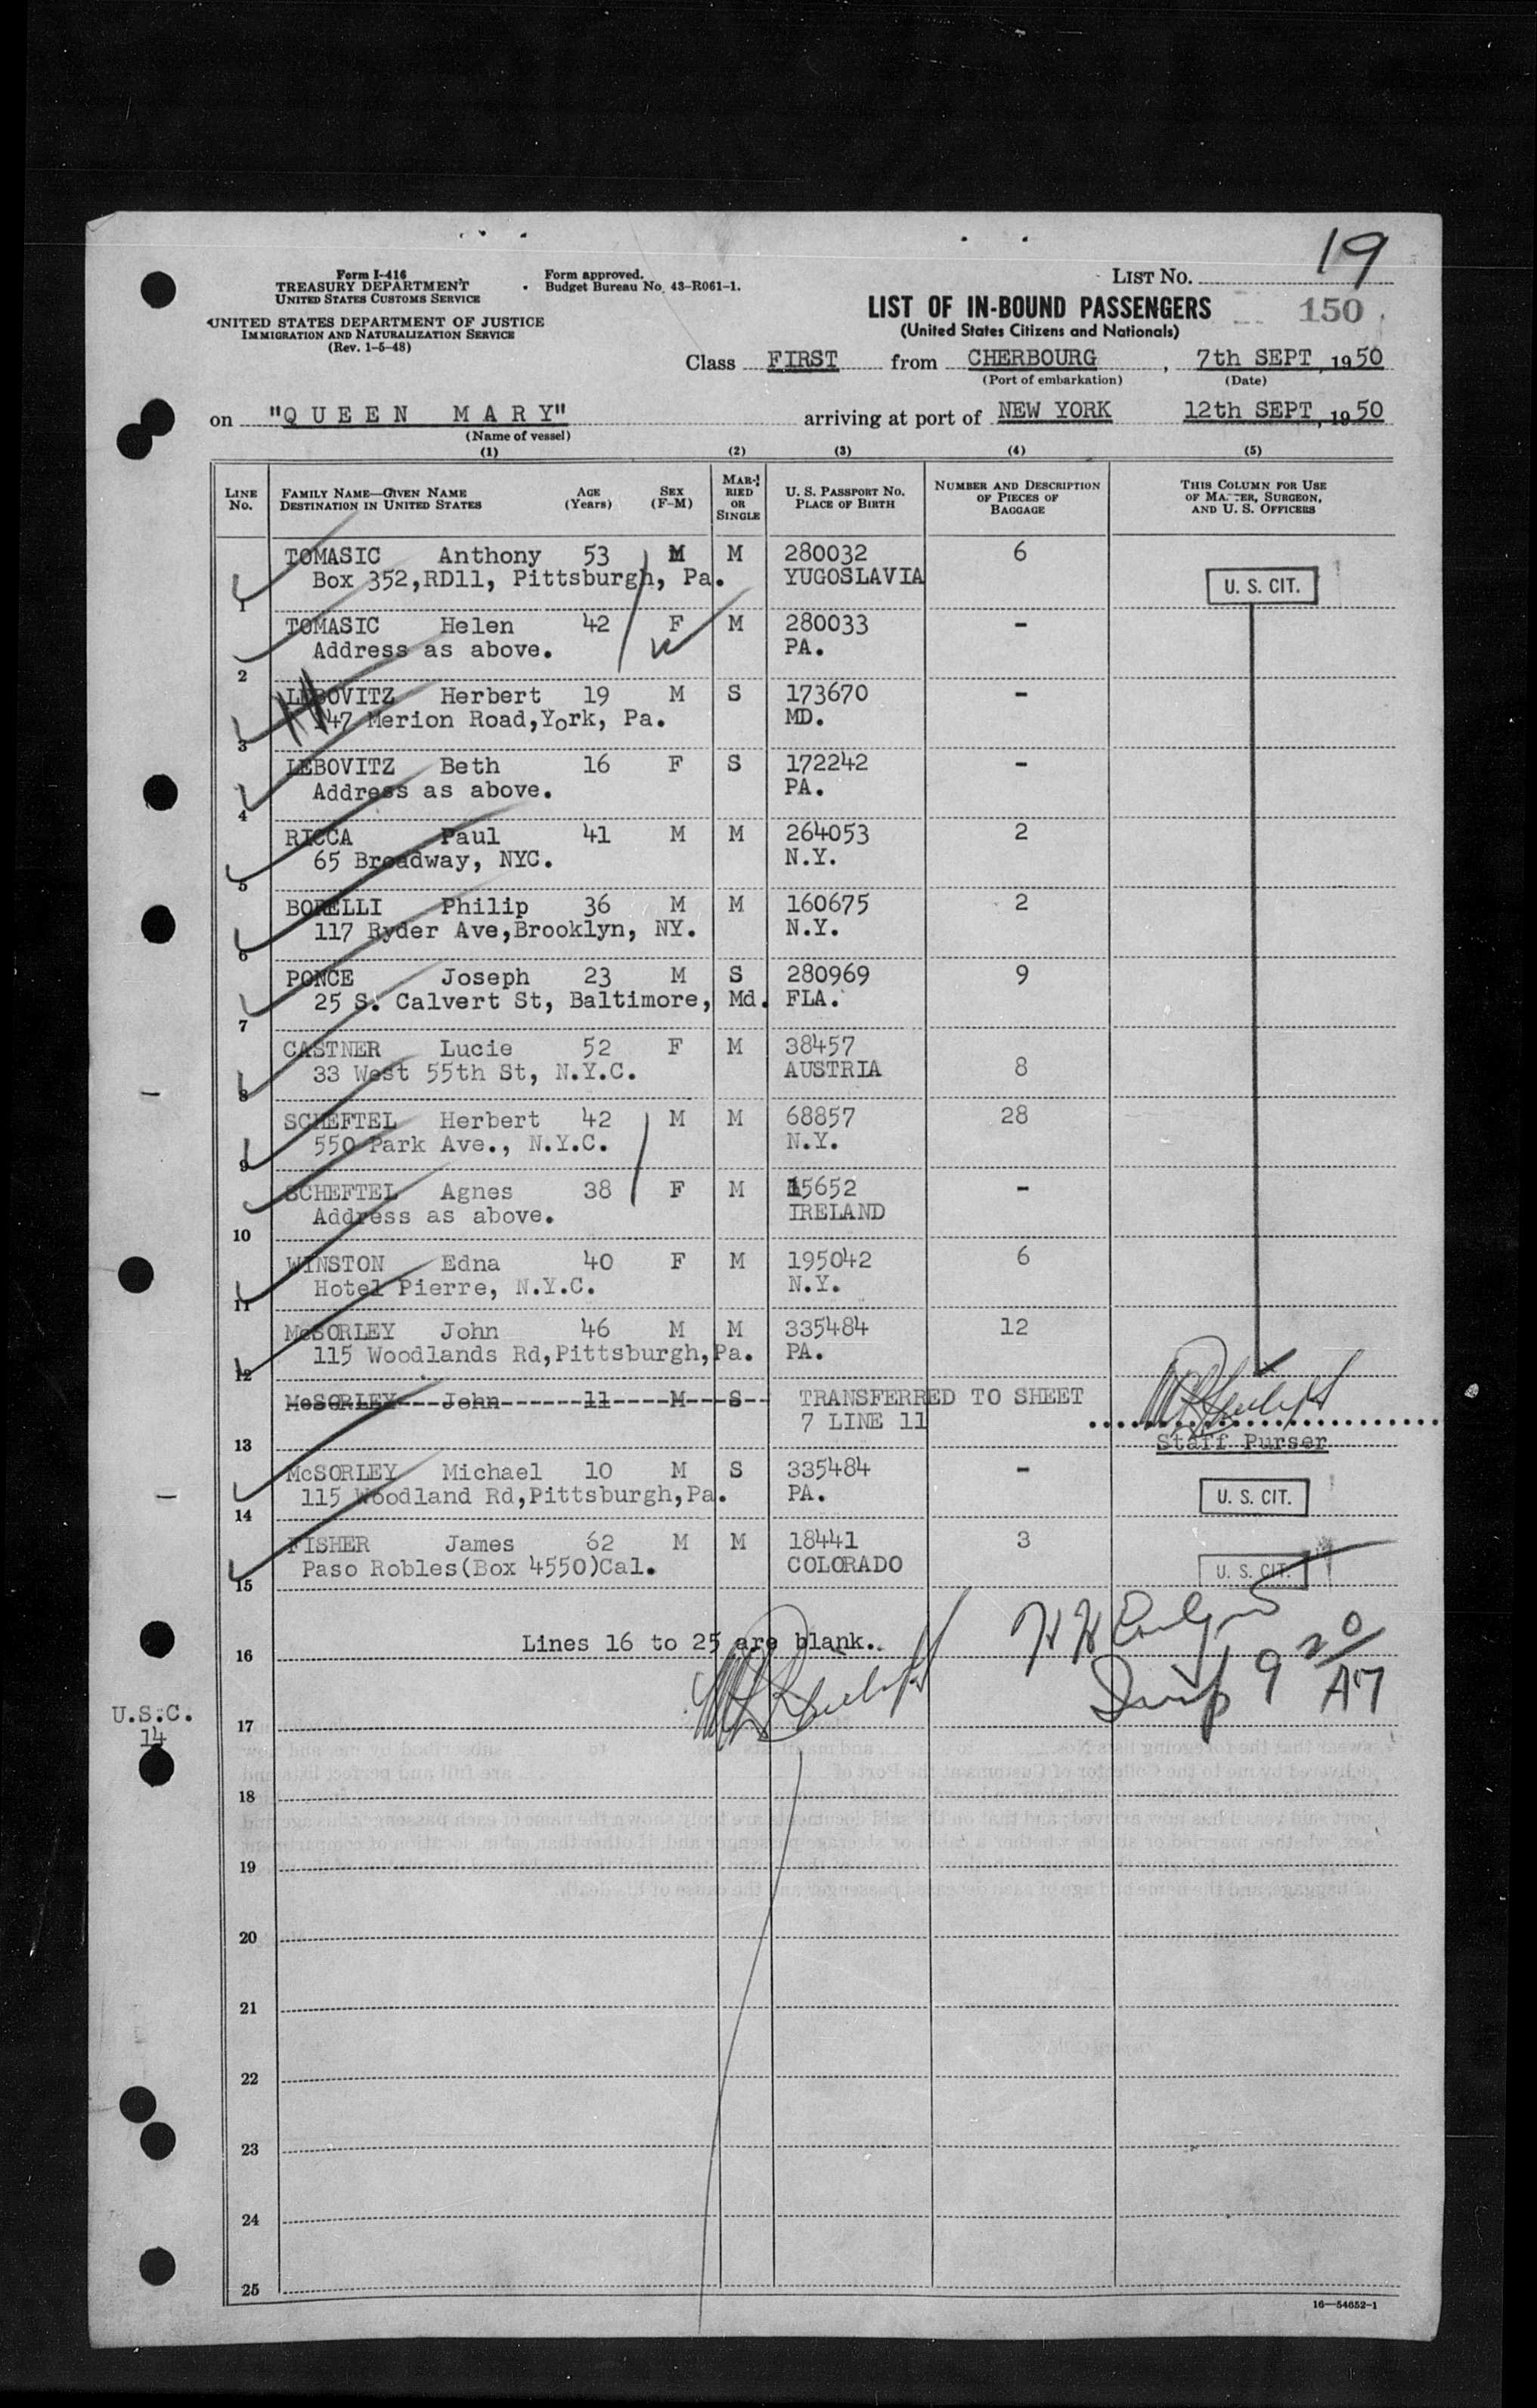 19
Form I-416
TREASURY DEPARTMENT
UNITED STATES CUSTOMS SERVICE
Form approved.
Budget Bureau No. 43-R061-1.
LIST NO.
UNITED STATES DEPARTMENT OF JUSTICE
IMMIGRATION AND NATURALIZATION SERVICE
(Rev. 1-5-48)
LIST OF IN-BOUND PASSENGERS
(United States Citizens and Nationals)
150
Class FIRST from CHERBOURG, 7th SEPT, 1950
(Port of embarkation) (Date)
on "QUEEN MARY" arriving at port of NEW YORK 12th SEPT, 1950
(Name of vessel)
(1) (2) (3) (4) (5)
LINE No. FAMILY NAME—GIVEN NAME DESTINATION IN UNITED STATES AGE (Years) SEX (F-M) MARRIED OR SINGLE U. S. PASSPORT No. PLACE OF BIRTH NUMBER AND DESCRIPTION OF PIECES OF BAGGAGE THIS COLUMN FOR USE OF MASTER, SURGEON, AND U. S. OFFICERS
TOMASIC Anthony 53 M M 280032 6
Box 352,RD11, Pittsburgh, Pa. YUGOSLAVIA U. S. CIT.
1
TOMASIC Helen 42 F M 280033 -
Address as above. PA.
2
LEBOVITZ Herbert 19 M S 173670 -
147 Merion Road,York, Pa. MD.
3
LEBOVITZ Beth 16 F S 172242 -
Address as above. PA.
4
RICCA Paul 41 M M 264053 2
65 Broadway, NYC. N.Y.
5
BORELLI Philip 36 M M 160675 2
117 Ryder Ave,Brooklyn, NY. N.Y.
6
PONCE Joseph 23 M S 280969 9
25 S. Calvert St, Baltimore, Md. FLA.
7
CASTNER Lucie 52 F M 38457
33 West 55th St, N.Y.C. AUSTRIA 8
8
SCHEFTEL Herbert 42 M M 68857 28
550 Park Ave., N.Y.C. N.Y.
9
SCHEFTEL Agnes 38 F M 15652 -
Address as above. IRELAND
10
WINSTON Edna 40 F M 195042 6
Hotel Pierre, N.Y.C. N.Y.
11
McSORLEY John 46 M M 335484 12
115 Woodlands Rd,Pittsburgh,Pa. PA.
12
McSORLEY John 11 M S TRANSFERRED TO SHEET
7 LINE 11
13 Staff Purser
McSORLEY Michael 10 M S 335484 -
115 Woodland Rd,Pittsburgh,Pa. PA. U. S. CIT.
14
FISHER James 62 M M 18441 3
Paso Robles(Box 4550)Cal. COLORADO U. S. CIT.
15
Lines 16 to 25 are blank.
16
U.S.C.
14
17
18
19
20
21
22
23
24
25
16—54652-1